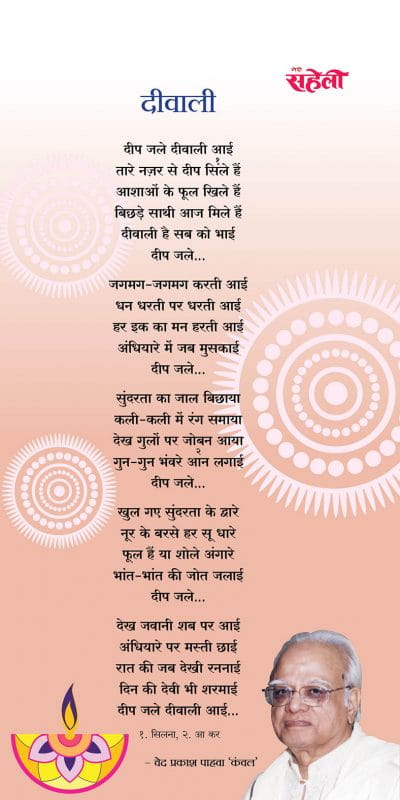 मेरी
सहेली
दीवाली
दीप जले दीवाली आई
१
तारे नज़र से दीप सिले हैं
आशाओं के फूल खिले हैं
बिछड़े साथी आज मिले हैं
दीवाली है सब को भाई
दीप जले...
जगमग-जगमग करती आई
धन धरती पर धरती आई
हर इक का मन हरती आई
अंधियारे में जब मुसकाई
दीप जले...
सुंदरता का जाल बिछाया
कली-कली में रंग समाया
देख गुलों पर जोबन आया
२
गुन-गुन भंवरे आन लगाई
दीप जले...
खुल गए सुंदरता के द्वारे
नूर के बरसे हर सू धारे
फूल हैं या शोले अंगारे
भांत-भांत की जोत जलाई
दीप जले...
देख जवानी शब पर आई
अंधियारे पर मस्ती छाई
रात की जब देखी रननाई
दिन की देवी भी शरमाई
दीप जले दीवाली आई...
१. सिलना, २. आ कर
– वेद प्रकाश पाहवा ‘कंवल’